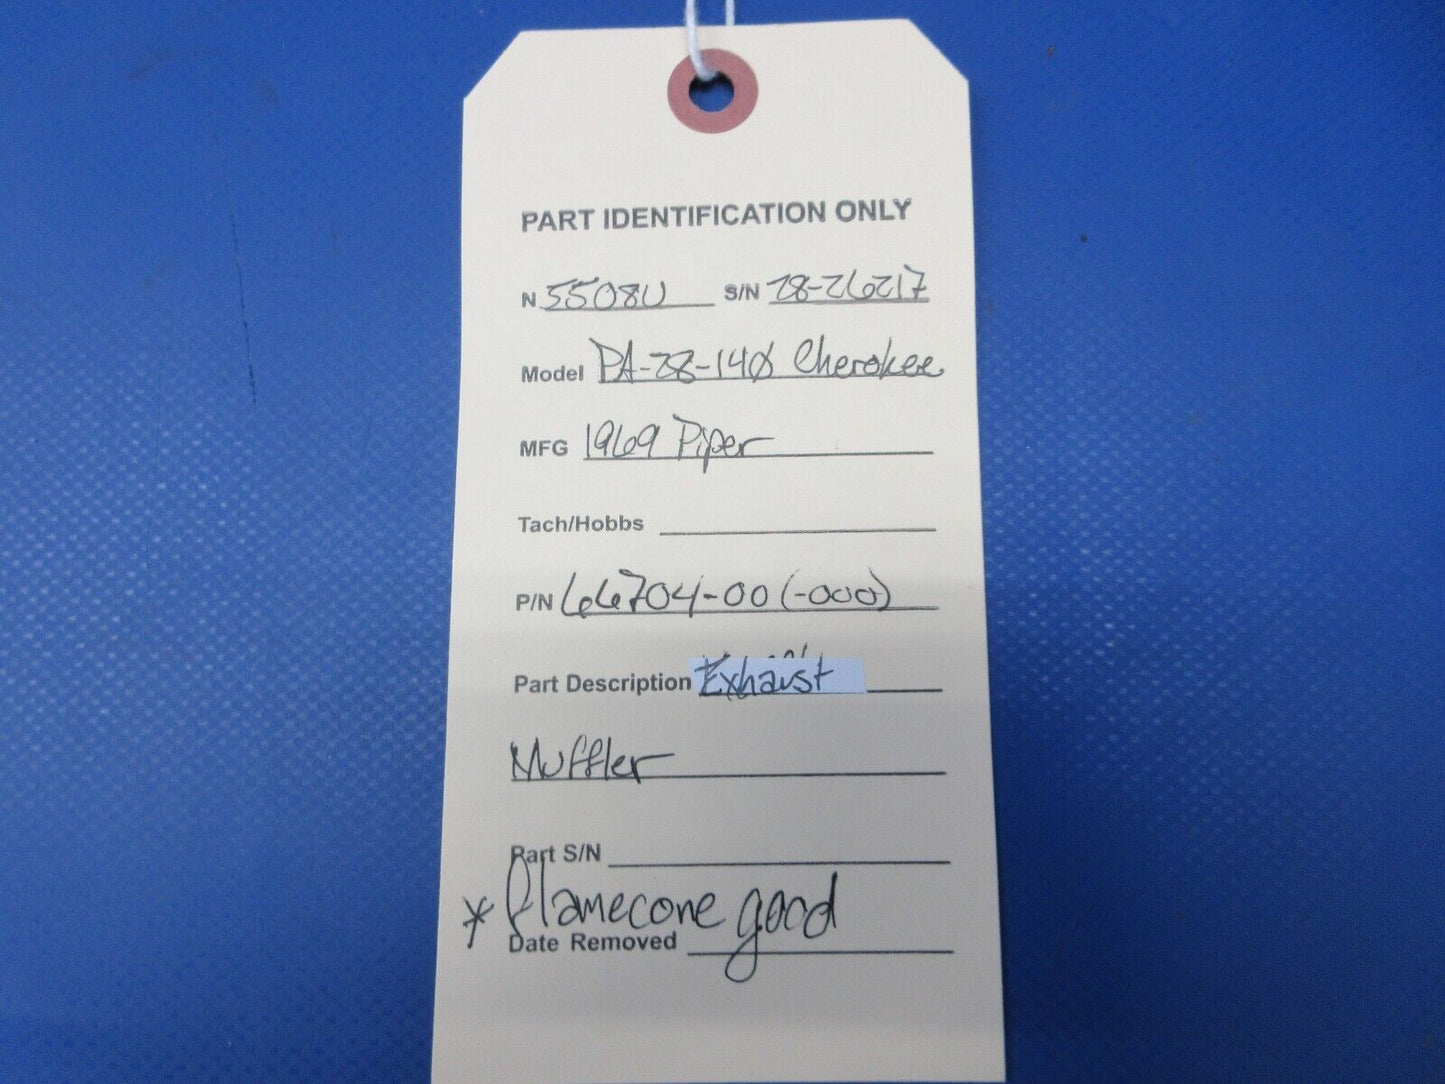 PART IDENTIFICATION ONLY
N 5508U S/N 28-26217
Model PA-28-140 Cherokee
MFG 1969 Piper
Tach/Hobbs
P/N 66704-00 (-000)
Part Description Exhaust
Muffler
Part S/N
* flamecone good
Date Removed